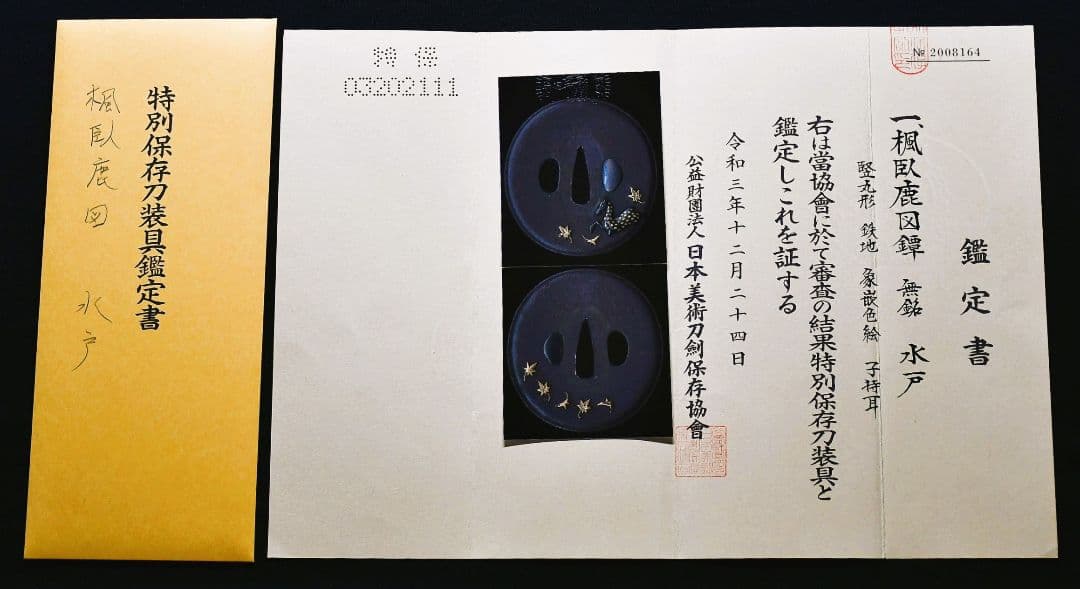 特別保存刀装具鑑定書
楓臥鹿図 水戸
特保
03202111
№ 2008164
鑑定書
一、楓臥鹿図鐔 無銘 水戸
竪丸形 鉄地 象嵌色絵 子持耳
右は當協會に於て審査の結果特別保存刀装具と
鑑定しこれを証する
令和三年十二月二十四日
公益財團法人日本美術刀劍保存協會